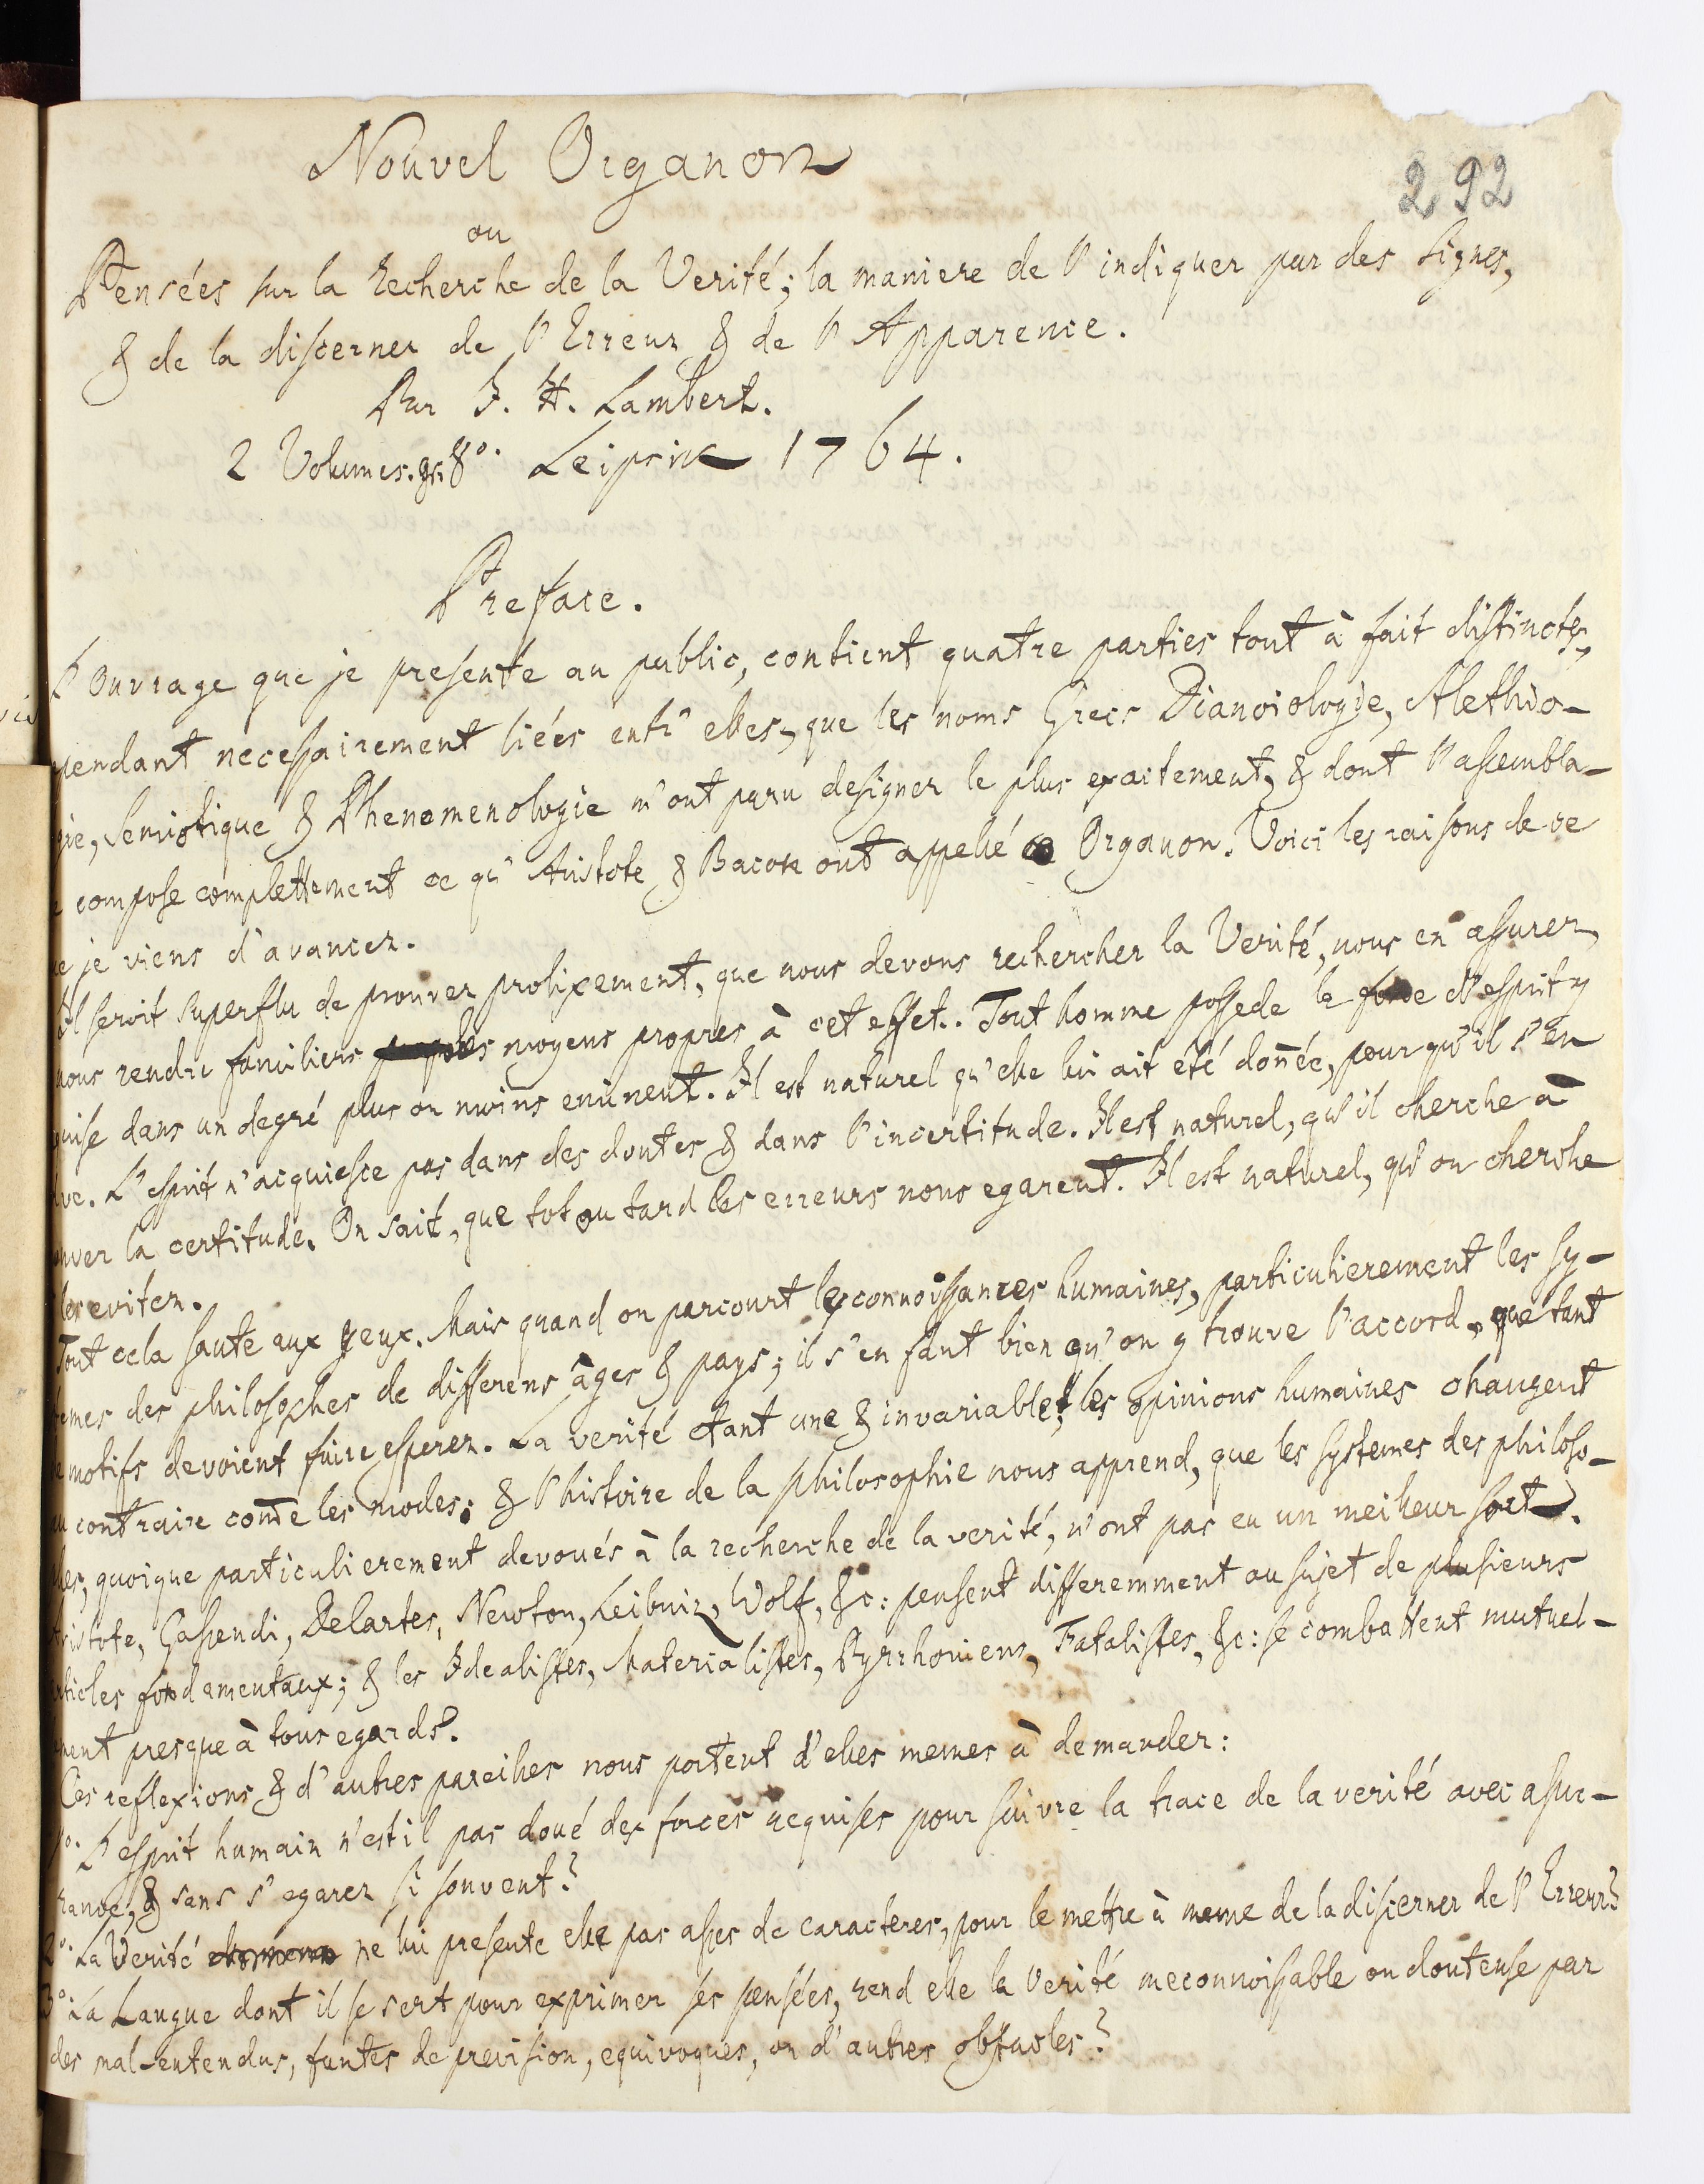 Nouvel Organon
292
ou
Pensées sur la Recherche de la Verité; la maniere de l'indiquer par des signes,
& de la discerner de l'Erreur & de l'Apparence.
Par J. H. Lambert.
2 Volumes. gr. 8°. Leipsic 1764.
Preface.
L'Ouvrage que je presente au public, contient quatre parties tout à fait distinctes,
pendant necessairement liées entr' elles, que les noms Grecs Dianoiologie, Alethio-
gie, Semiotique & Phenomenologie m'ont paru designer le plus exactement, & dont l'assembla-
compose complettement ce qu' Aristote & Bacon ont appellé Organon. Voici les raisons de ce
e je viens d'avancer.
Il seroit superflu de prouver prolixement, que nous devons rechercher la Verité, nous en assurer,
nous rendre familiers moyens propres à cet effet. Tout homme possede la force d'esprit y
quise dans un degré plus ou moins eminent. Il est naturel qu'elle lui ait été donnée, pour qu'il s'en
ve. L'esprit n'acquiesce pas dans des doutes & dans l'incertitude. Il est naturel, qu'il cherche à
uver la certitude. On sait, que tot ou tard les erreurs nous egarent. Il est naturel, qu'on cherche
les eviter.
Tout cela saute aux yeux. Mais quand on parcourt les connoissances humaines, particulierement les sy-
temes des philosophes de differens âges & pays; il s'en faut bien qu'on y trouve l'accord, que tant
e motifs devoient faire esperer. La verité etant une & invariable; les opinions humaines changent
au contraire com̄e les modes; & l'histoire de la philosophie nous apprend, que les systemes des philoso-
hes, quoique particulierement devoués à la recherche de la verité, n'ont pas eu un meilleur sort.
Aristote, Gassendi, Descartes, Newton, Leibniz, Wolf, &c: pensent differemment au sujet de plusieurs
rticles fondamentaux; & les Idealistes, Materialistes, Pyrrhoniens, Fatalistes, &c: se combattent mutuel-
ment presque à tous egards.
Ces reflexions & d'autres pareilles nous portent d'elles memes à demander:
1°. L'esprit humain n'est il pas doué des forces requises pour suivre la trace de la verité avec assu-
rance, & sans s'egarer si souvent?
2°. La Verité ne lui presente elle pas assez de caracteres, pour le mettre à meme de la discerner de l'Erreur?
3°. La Langue dont il se sert pour exprimer ses pensées, rend elle la Verité meconnoissable ou douteuse par
des mal-entendus, fautes de precision, equivoques, ou d'autres obstacles?